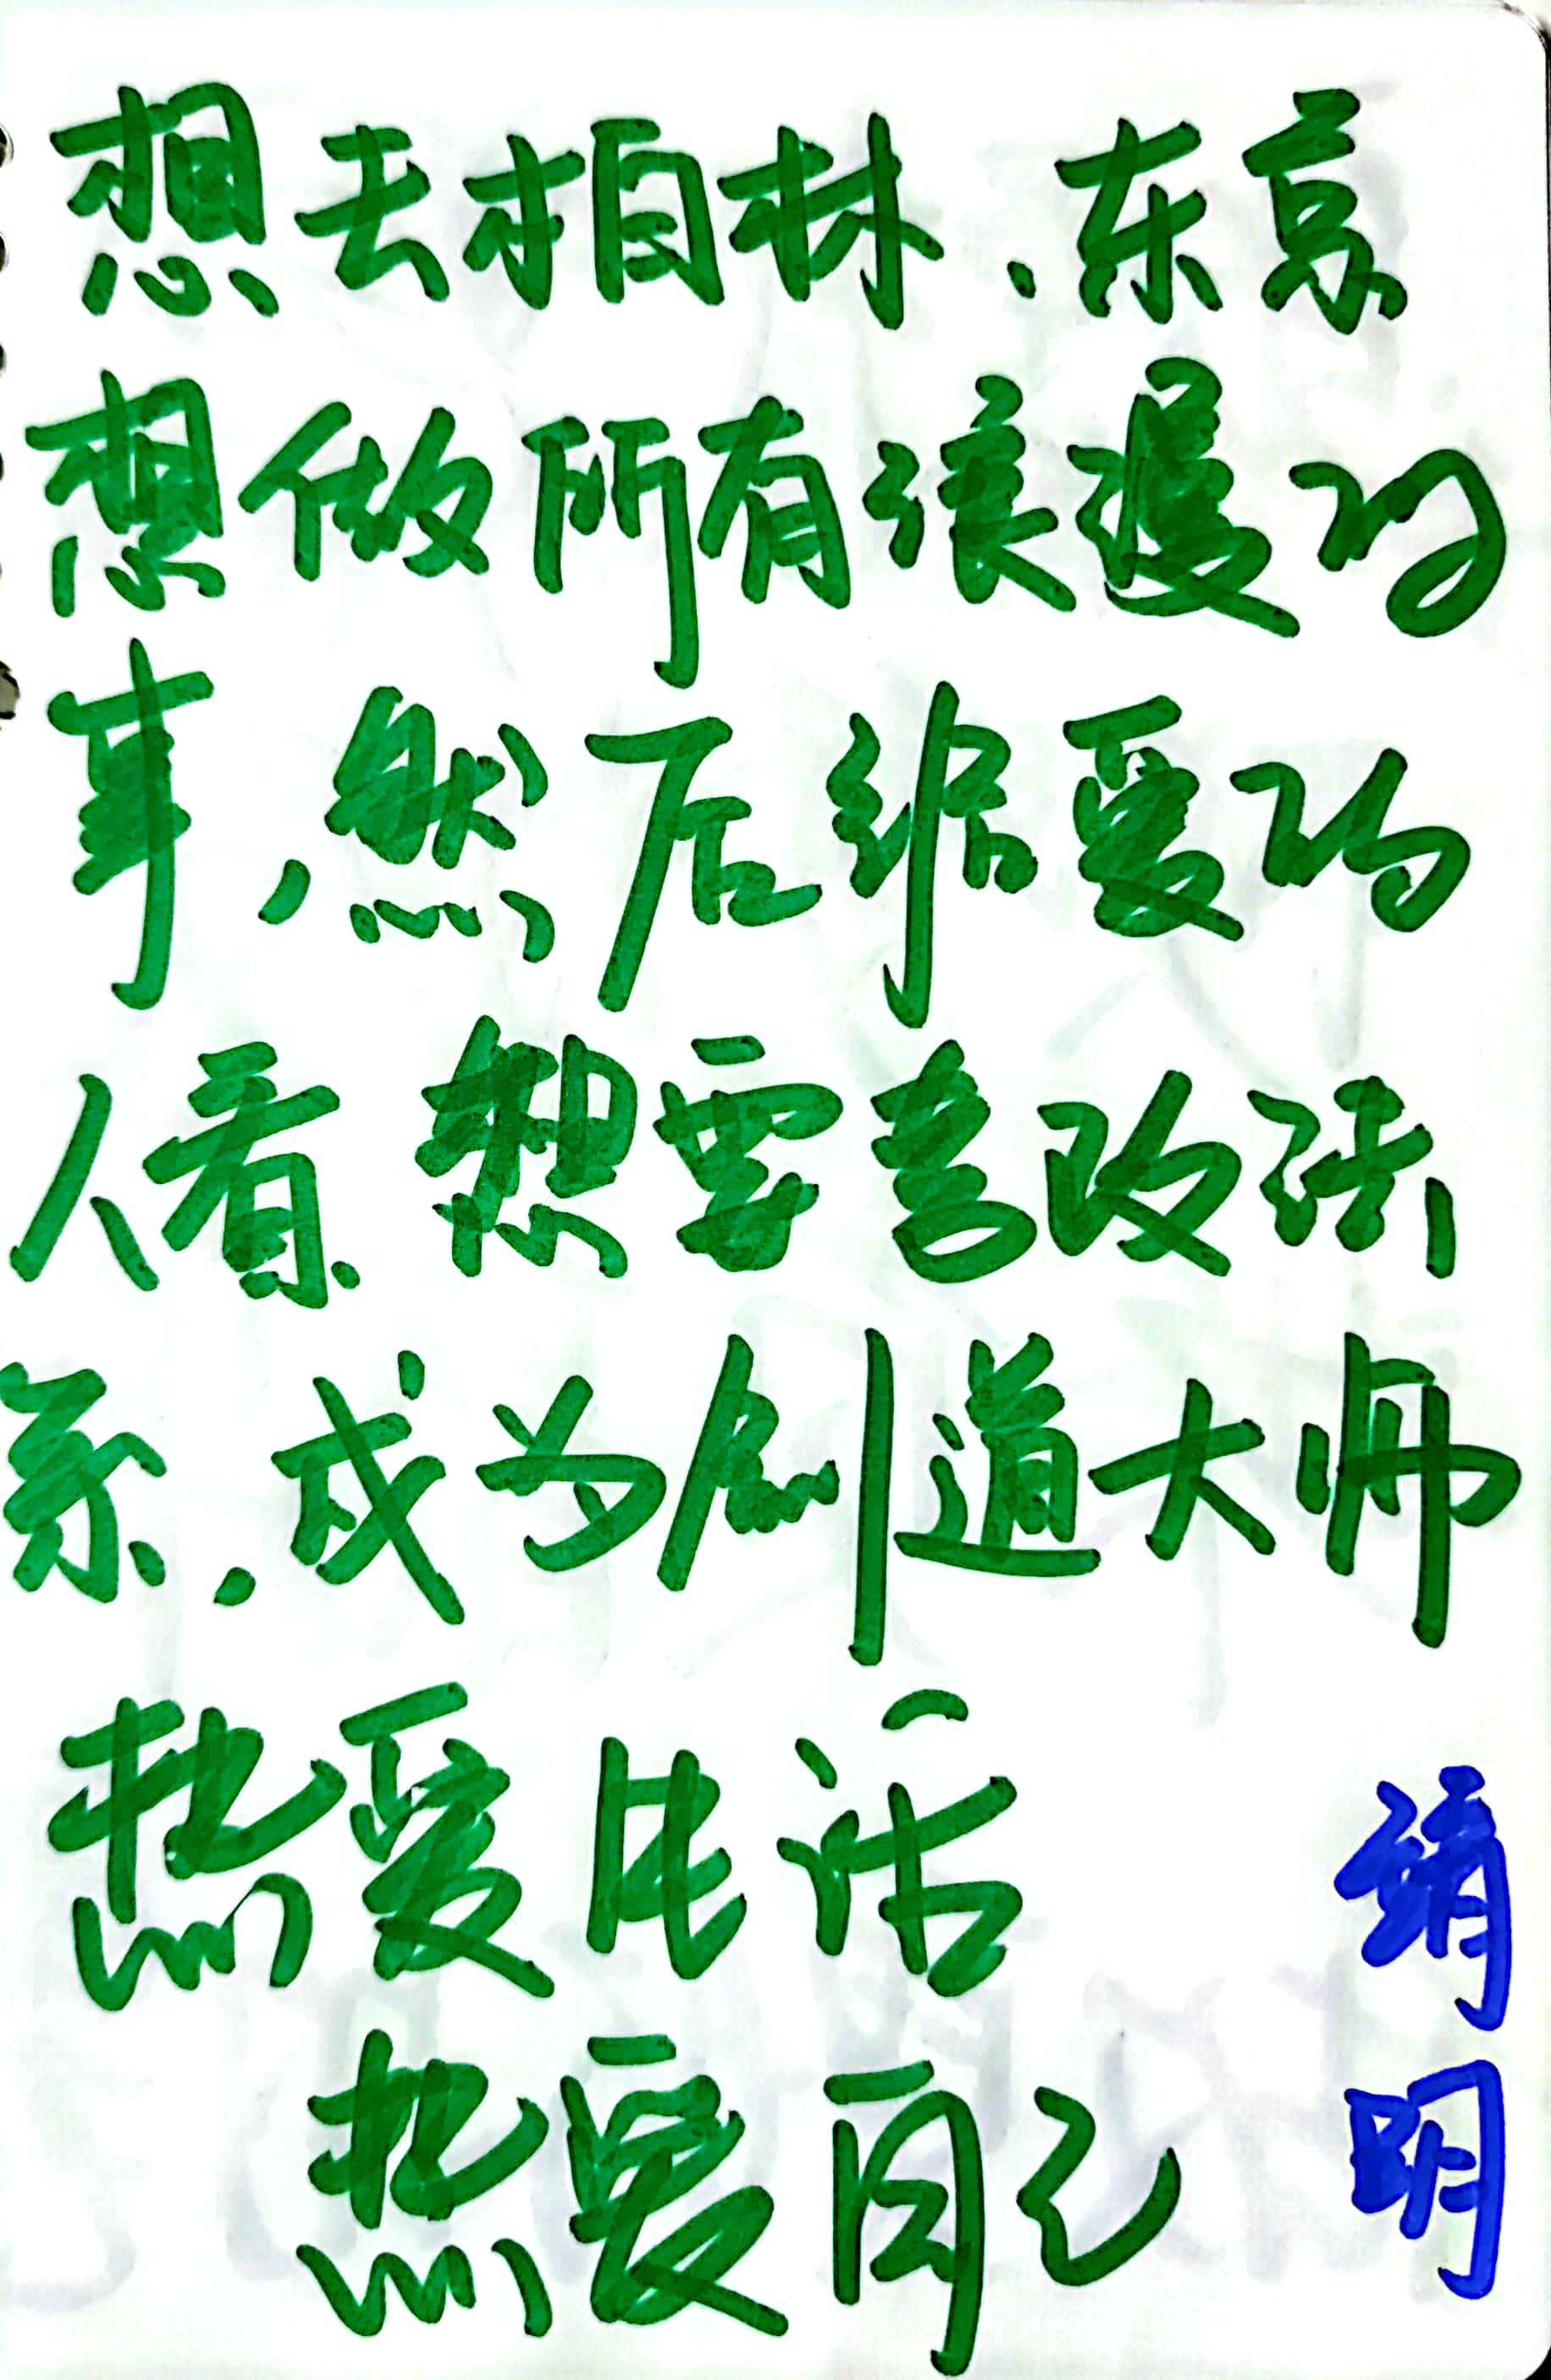 想去柏林、东京
想做所有浪漫的
事,然后给爱的
人看、想要去改
系.成为剑道大师
热爱生活
热爱自己
晴
明